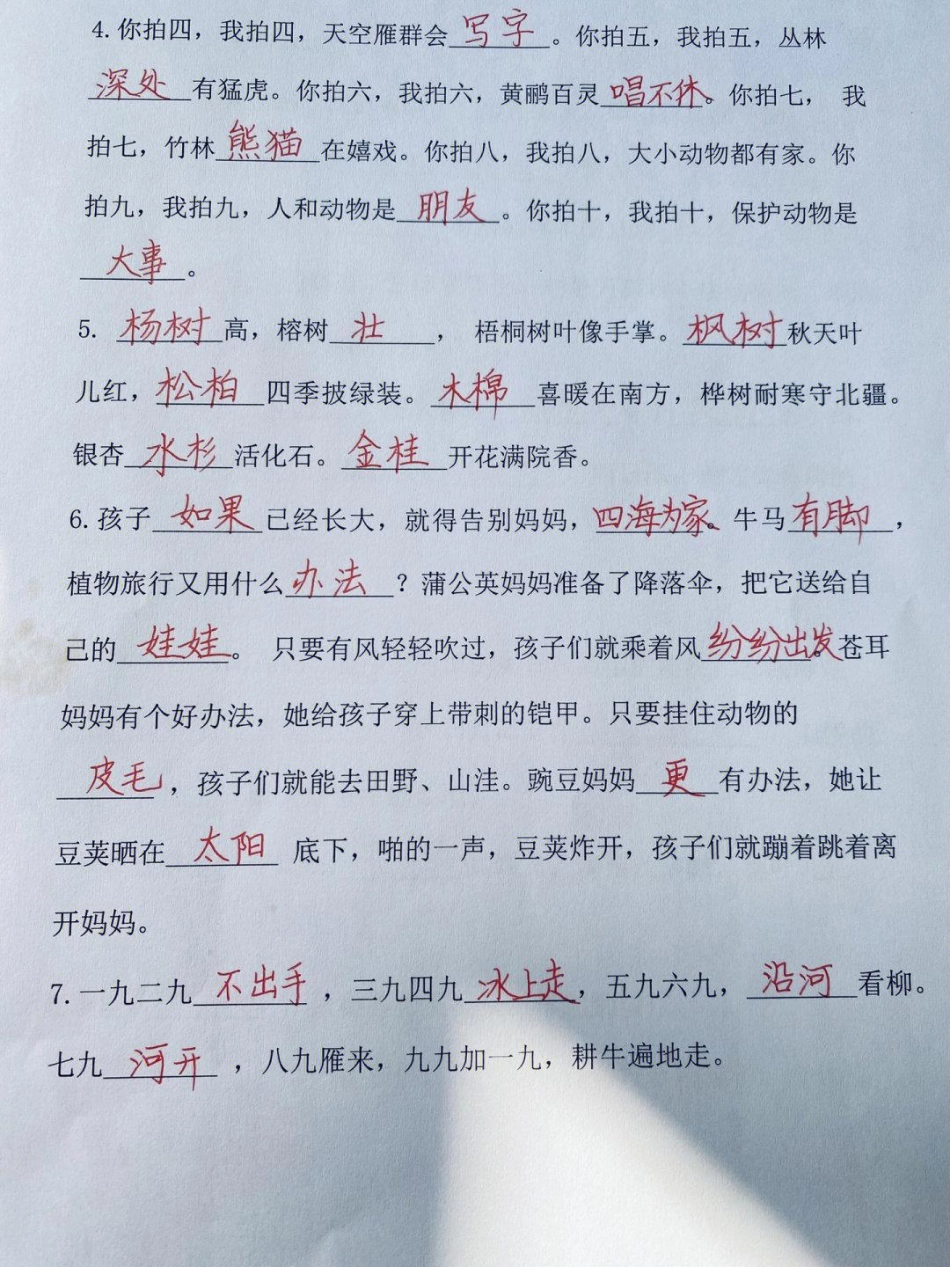 4.你拍四，我拍四，天空雁群会写字。你拍五，我拍五，丛林
深处有猛虎。你拍六，我拍六，黄鹂百灵唱不休。你拍七， 我
拍七，竹林熊猫在嬉戏。你拍八，我拍八，大小动物都有家。你
拍九，我拍九，人和动物是朋友。你拍十，我拍十，保护动物是
大事。
5. 杨树高，榕树壮， 梧桐树叶像手掌。枫树秋天叶
儿红，松柏四季披绿装。木棉喜暖在南方，桦树耐寒守北疆。
银杏水杉活化石。金桂开花满院香。
6.孩子如果已经长大，就得告别妈妈，四海为家。牛马有脚，
植物旅行又用什么办法？蒲公英妈妈准备了降落伞，把它送给自
己的娃娃。 只要有风轻轻吹过，孩子们就乘着风纷纷出发。苍耳
妈妈有个好办法，她给孩子穿上带刺的铠甲。只要挂住动物的
皮毛，孩子们就能去田野、山洼。豌豆妈妈更有办法，她让
豆荚晒在太阳 底下，啪的一声，豆荚炸开，孩子们就蹦着跳着离
开妈妈。
7.一九二九不出手，三九四九冰上走，五九六九，沿河看柳。
七九河开，八九雁来，九九加一九，耕牛遍地走。